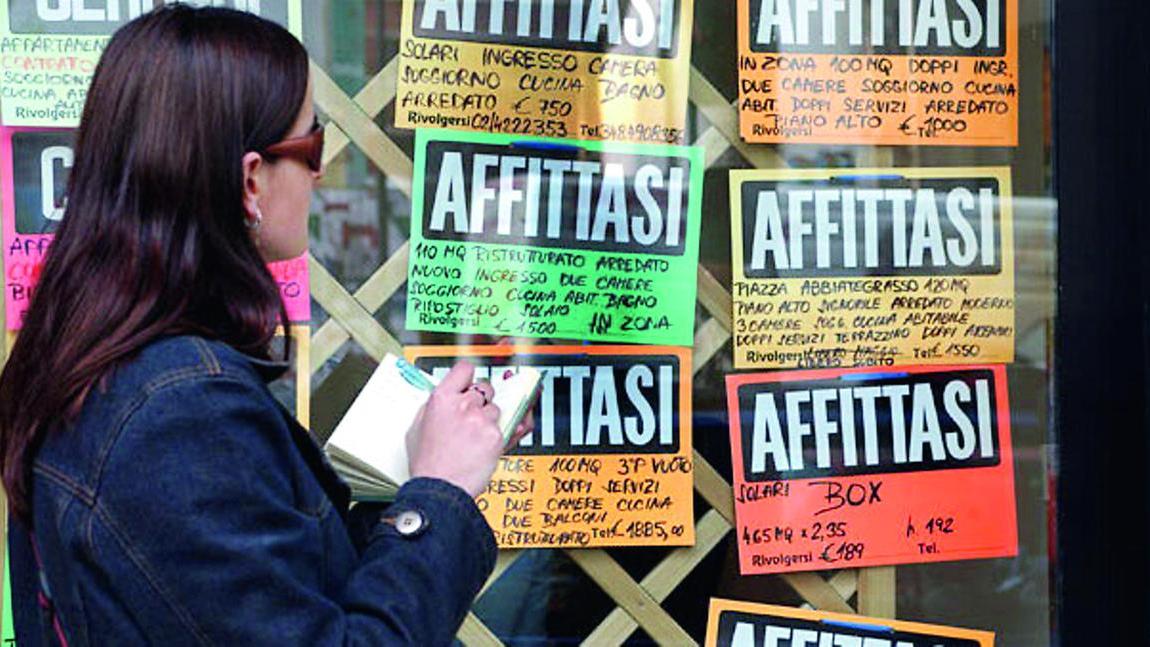 APPARTAMEN
CONTRATO
SOGGIORNO
CUCINA, AB
Rivolgersi
C
AFFITTASI
SOLARI INGRESSO CAMERA
SOGGIORNO CUCINA BAGNO
ARREDATO € 750
Rivolgersi 02/4222353 Tel.
AFFITTASI
IN ZONA 100 MQ DOPPI INGR.
DUE CAMERE SOGGIORNO CUCINA
ABIT. DOPPI SERVIZI ARREDATO
PIANO ALTO € 1000
Rivolgersi Tel.
AFFITTASI
110 MQ RISTRUTTURATO ARREDATO
NUOVO INGRESSO DUE CAMERE
SOGGIORNO CUCINA ABIT. BAGNO
RIPOSTIGLIO SOLAIO
Rivolgersi € 1500 IN ZONA
AFFITTASI
PIAZZA ABBIATEGRASSO 120MQ
PIANO ALTO SIGNORILE ARREDATO MODERNO
3 CAMERE SOGG. CUCINA ABITABILE
DOPPI SERVIZI TERRAZZINO DOPPI
Rivolgersi Tel. € 1550
SUBITO
ITTASI
TORE 100MQ 3°P VUOTO
RESSI DOPPI SERVIZI
O DUE CAMERE CUCINA
DUE BALCONI
RISTRUTTURATO Tel. € 1885,00
AFFITTASI
SOLARI BOX
465 MQ x 2,35 h. 192
Rivolgersi € 189 Tel.
AFFITTASI